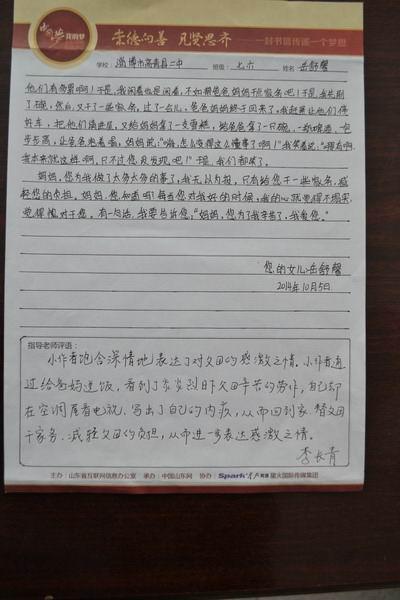 中国梦 我的梦
崇德向善 见贤思齐 ——一封书信传递一个梦想
学校：淄博市高青县二中 班级：七六 姓名 岳舒馨
他们有危害啊！于是，我闲着也是闲着，不如帮爸爸妈妈干些家务吧！于是，我先刷
了碗，然后，又干了一些家务，过了一会儿，爸爸妈妈终于回来了，我赶紧让他们停
好车，把他们请进屋，又给妈妈拿了一支雪糕，给爸爸拿了一只碗、一瓶啤酒、一包
步步高，让爸爸先喝着，妈妈说：“咦，怎么变得这么懂事了啊！”我笑着说：“哪有啊，
我本来就这样啊，只不过您没发现吧！”于是，我们都笑了。
妈妈，您为我做了太多太多的事了，我无以为报，只有给您干一些家务，减
轻您的负担。妈妈，您知道吗？每当您对我好的时候，我的心就觉得不踏实，
觉得愧对于您。有一句话，我要告诉您：“妈妈，您为了我辛苦了，我爱您。”
您的女儿：岳舒馨
2014年10月5日
指导老师评语：
小作者饱含深情地表达了对父母的感激之情。小作者通
过给爸妈送饭，看到了炎炎烈日下父母辛苦的劳作，自己却
在空调屋看电视，写出了自己的内疚，从而回到家替父母
干家务，减轻父母的负担，从而进一步表达感激之情。
李长青
主办：山东省互联网信息办公室 承办：中国山东网 协办：Spark 星火国际传媒集团